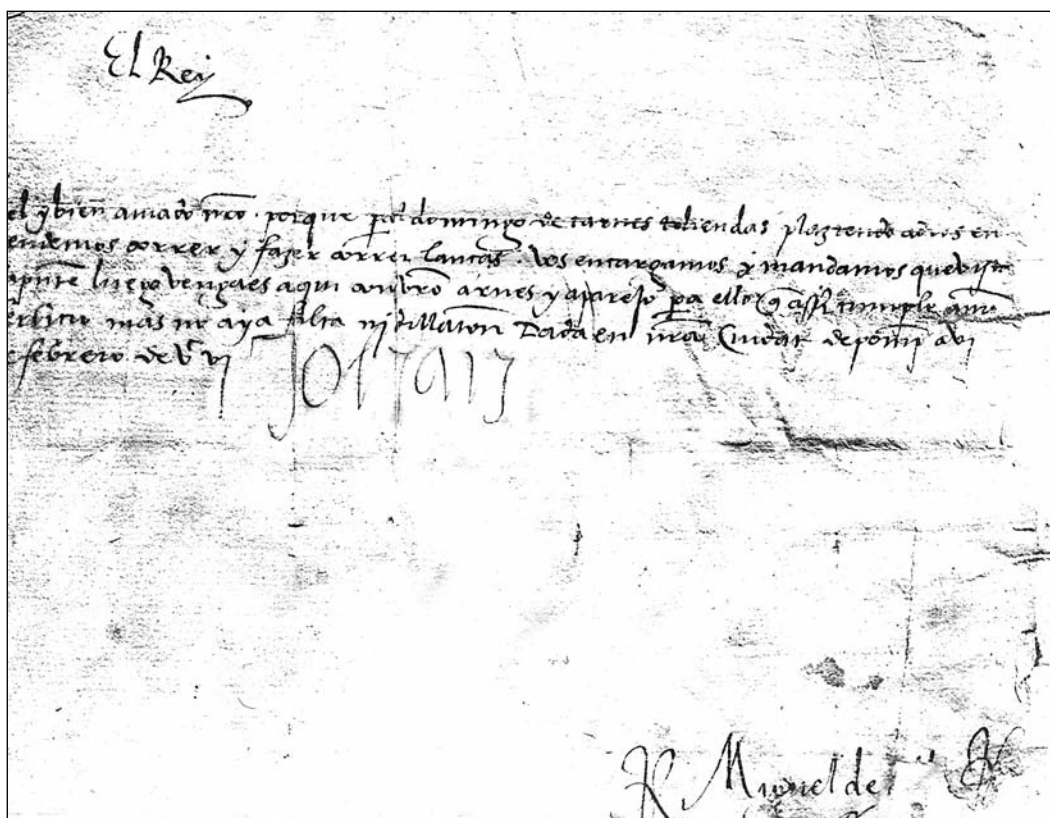 El Rey
el y bien amado nr̃o. porque pa'l domingo de carnes toliendas plaziendo a dios en
endemos correr y fazer correr lanças. vos encargamos y mandamos que vista
luego vengaes aqui con vr̃o arnes y aparejo pa ello q̃ assi cumple a nr̃o
servicio mas no aya falta ni dillacion Dada en nr̃a Ciudat de a vi
e febrero de vi
Johan
Miguel de